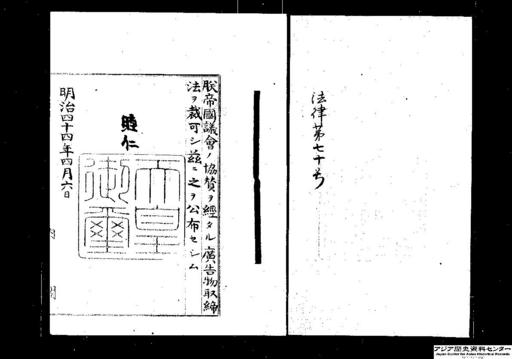 法律第七十号
朕帝國議會ノ協賛ヲ經タル廣告物取締
法ヲ裁可シ茲ニ之ヲ公布セシム
睦仁
天皇
御璽
明治四十四年四月六日
アジア歴史資料センター
Japan Center for Asian Historical Records